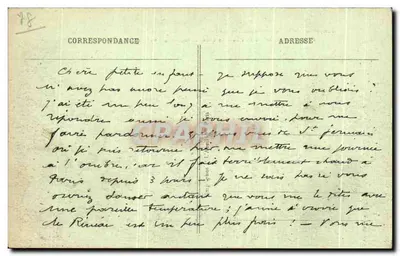 88
CORRESPONDANCE ADRESSE
Chère petite enfant - Je suppose que vous
n'avez pas encore pensé que je vous oubliais ?
J'ai été un peu long à me mettre à vous
répondre aussi je vous envoie, pour me
faire pardonner, quelques vues de St Germain
où je suis retourné hier, me mettre une journée
à l'ombre, car il fait terriblement chaud à
Paris depuis 3 jours - Je ne sais pas si vous
pouvez danser autant que vous me le dites avec
une pareille température ; j'aime à croire que
le est un peu plus frais ! - Vous me